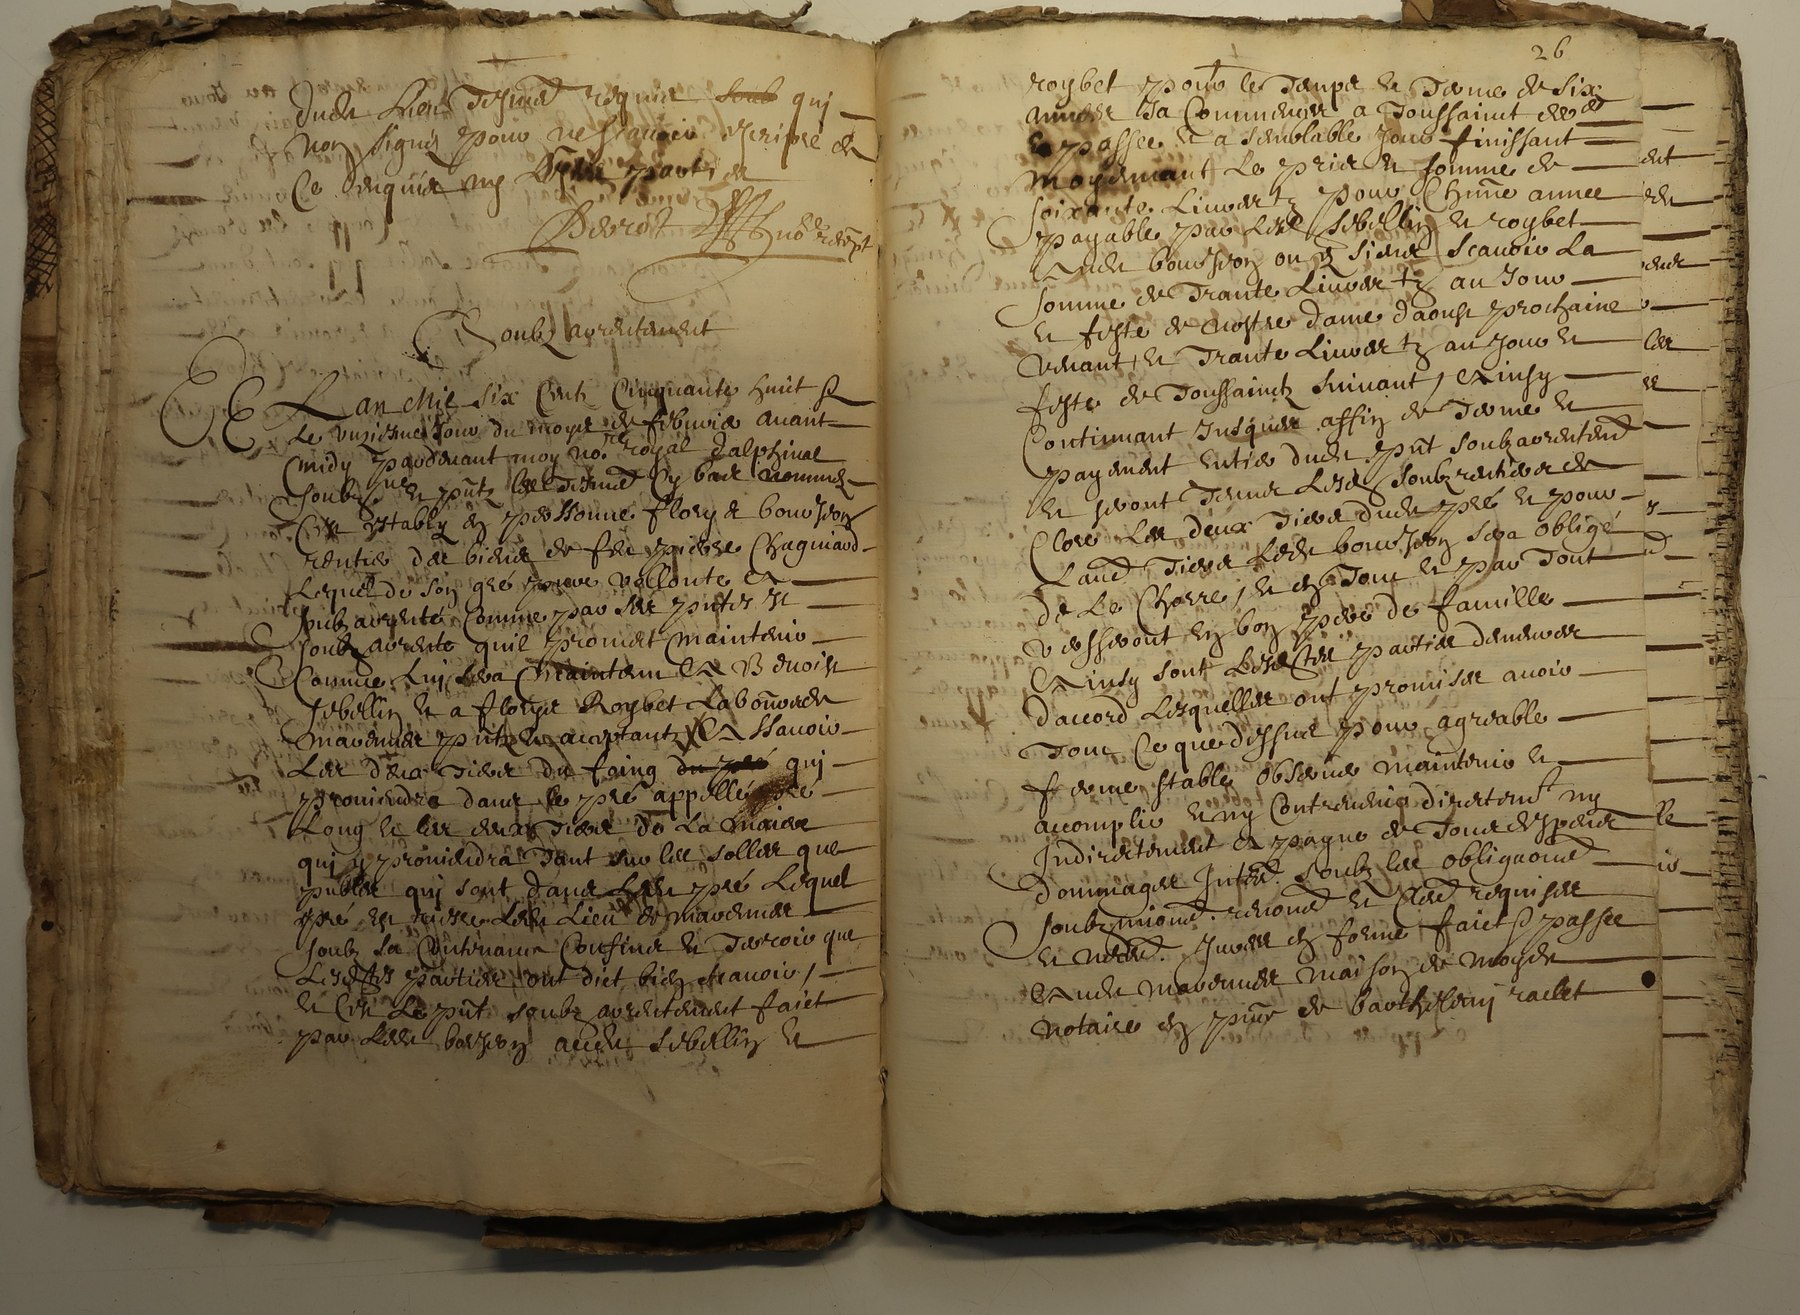 dudit Lieu tesmoins requis soub qui
non signés pour ne scavoir escripre de
Ce enquis ny lesdites parties
Devrot no.re recept
Soubz arentement
L an Mil six Centz Cinquante huict &
Le unziesme Jour du moys de febvrier avant
midy pardevant moy no.re royal dalphinal
soubz.né et pntz les tesmoins cy bas nommés
C'est estably en personne flory de bourjon
rentier des biens de feu pierre Chagniard
Lequel de son gré pure vollonté A
soubz arenté Comme par ses pntes et
soubz arente quil promet maintenir
Comme luy sera Maintenu A Benoist
sebellin et a fleurye Roybet Laboureurs
mavemes pntz et acceptantz A scavoir
Les deux tiers du foing du pré qui
proviendra dans le pré appellé pré
Long et les deux tiers de La
qui y proviendra tant sur les solles que
publes qui sont dans Ledit pré Lequel
pré est Ledit Lieu de mavemes
soubz sa Contenance Confins et terroir que
Lesdites parties ont dict bien scavoir /
et C'est Le pnt soubz arentement faict
par Ledit bourjon audit sebellin et
26
roybet pour le temps et terme de six
années Ja Commencés a Toussainct
passée et a semblable Jour finissant
moyenant Le pris et somme de
soixante Livres tz pour Chune année
payable par Lesd sebellin et roybet
Audit bourjon ou es siens scavoir La
somme de Trante Livres tz au Jour
et feste de nostre dame d'aoust prochaine
venant, et Trante Livres tz au Jour et
feste de Toussainctz suivant / Ainsy
Continuant Jusques affin de Terme et
payement entier dudit pnt soubz arentent
et seront tenus Lesd soubz rentiers de
Clore Les deux tiers dudit pré et pour
Laud tiers Ledit bourjon sera obligé
de Le Clorre, et en Tout et par Tout
verseront en bon pere de famille
Ainsy sont Lesdites parties demeures
d'accord Lesquelles ont promises avoir
Tout Ce que dessus pour agreable
ferme stable observer maintenir et
accomplir et ny Contrevenir directemt ny
Indirectement A payne de Tous despens
dommages Intes. soubz les obligaons
soubzmions. renons et Claus requises
et necess. Jures en forme faict & passé
Audit mavemes maison de moydit
notaire en pnce de barthelemy raclet